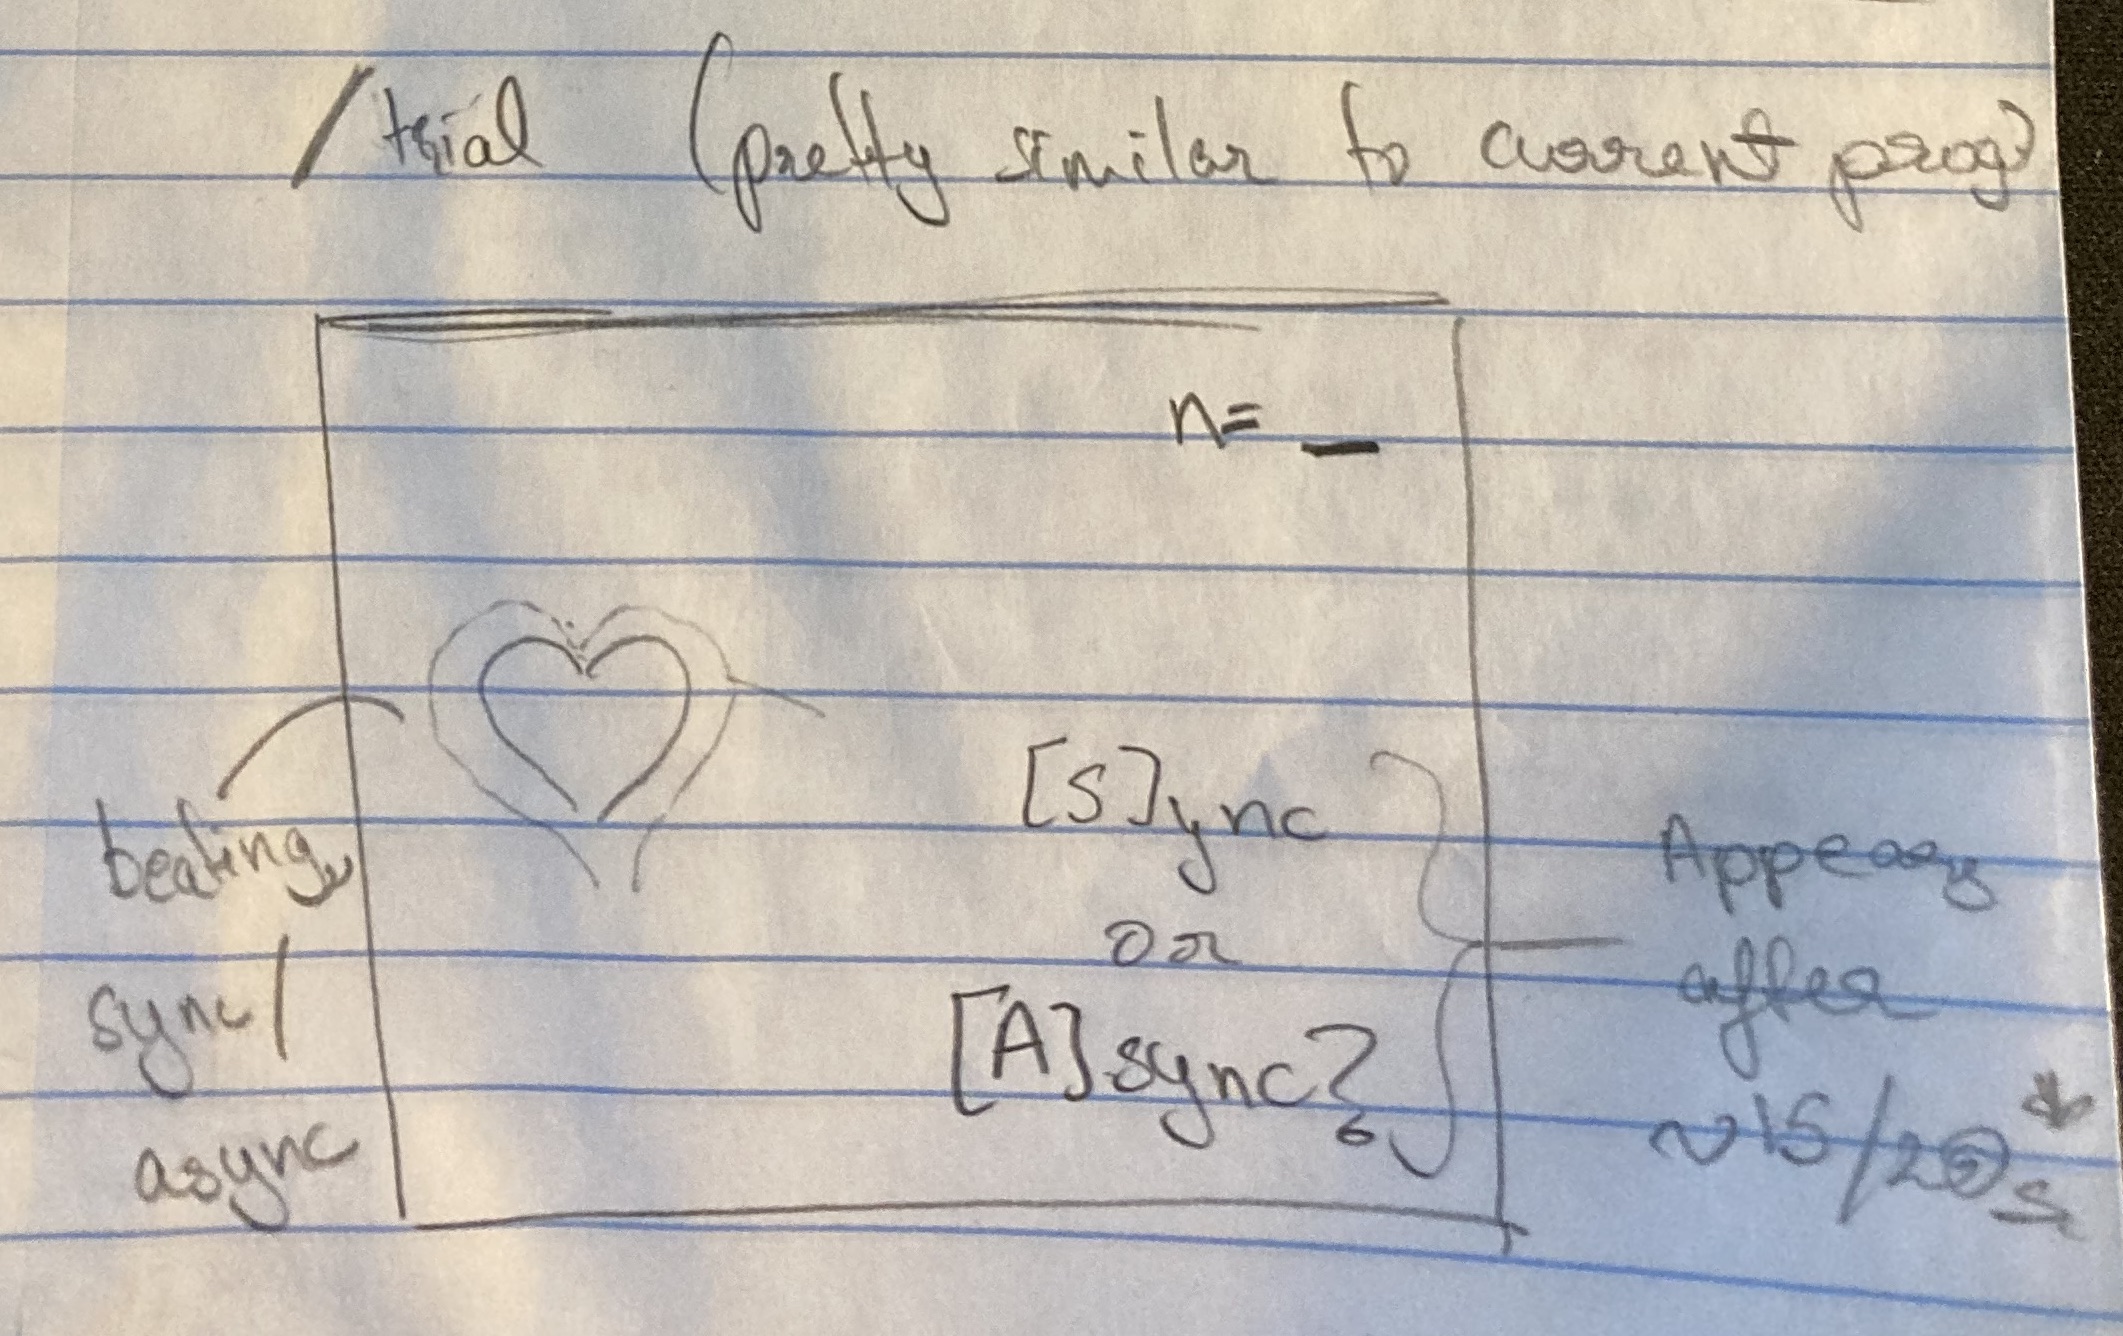 /trial (pretty similar to current prog)
n= _
[S]ync
or
[A]sync?
beating
sync/
async
Appears
after
~15/20s*